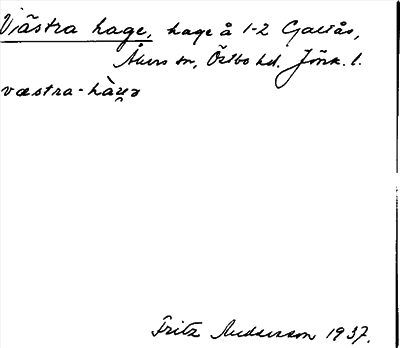 Västra hage, hage å 1-2 Galtås,
Åkers sn, Östbo hd. Jönk. l.
væstra-hàu̯ə
Fritz Andersson 1937.